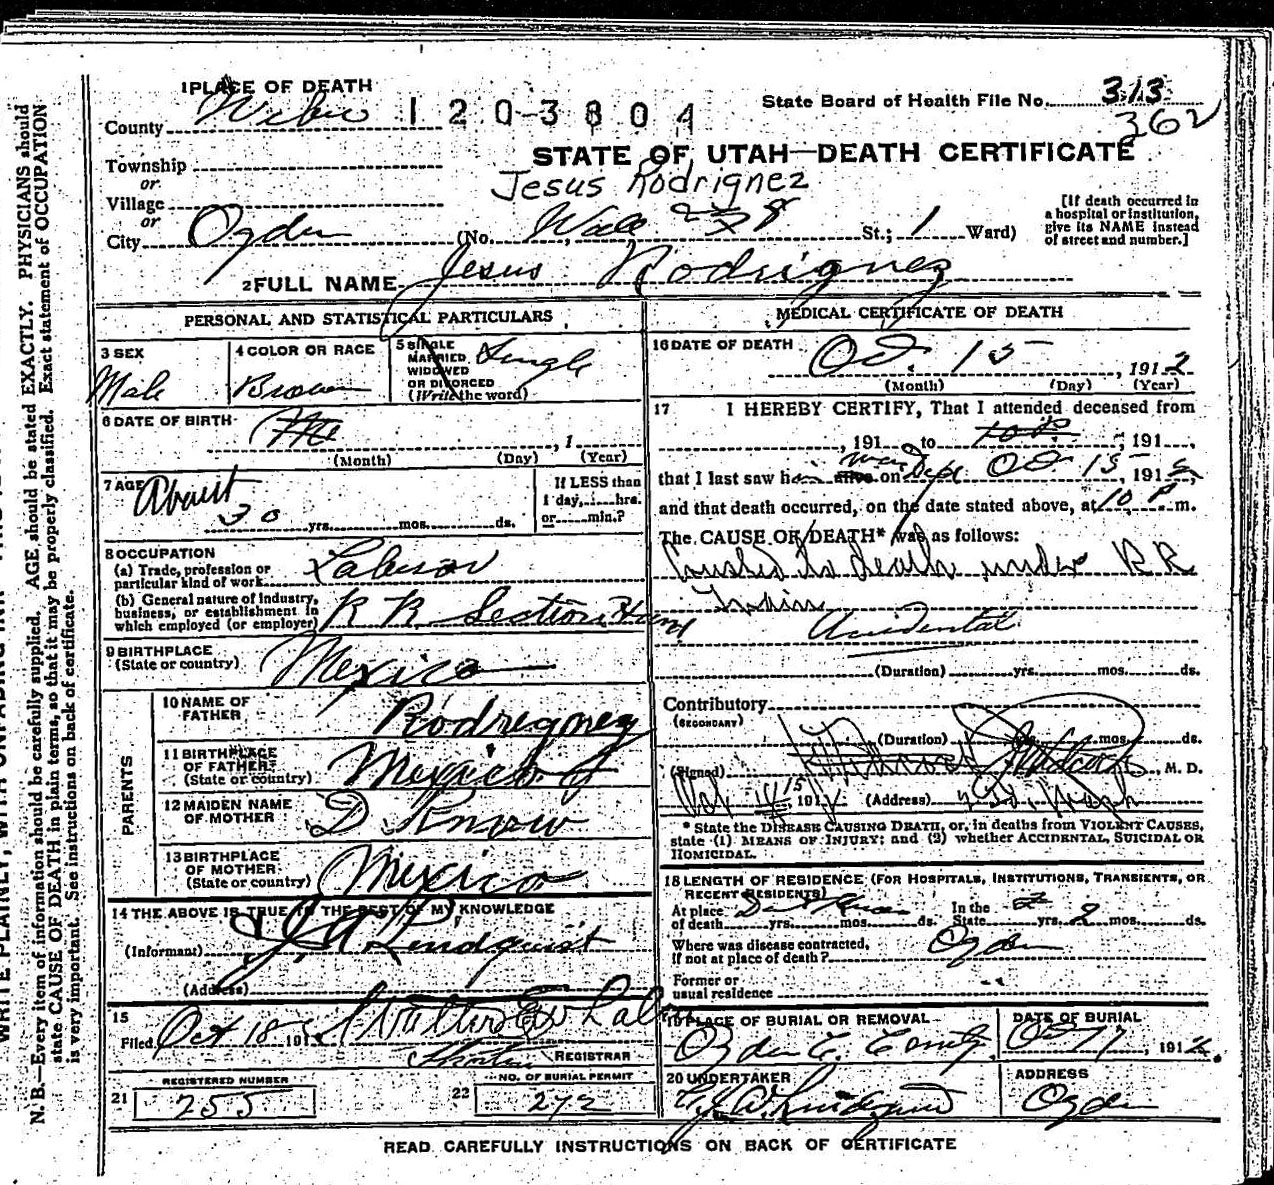 1 PLACE OF DEATH
1203804
State Board of Health File No. 313
362
County Weber
STATE OF UTAH—DEATH CERTIFICATE
Township
or
Jesus Rodriguez
Village
or
City Ogden (No. Wall 2 8 St.; 1 Ward)
[If death occurred in
a hospital or institution,
give its NAME instead
of street and number.]
2 FULL NAME Jesus Rodriguez
PERSONAL AND STATISTICAL PARTICULARS
3 SEX
Male
4 COLOR OR RACE
Brown
5 SINGLE
MARRIED
WIDOWED
OR DIVORCED
(Write the word)
Single
6 DATE OF BIRTH
, 1
(Month) (Day) (Year)
7 AGE
About
30 yrs. mos. ds.
If LESS than
1 day, hrs.
or min.?
8 OCCUPATION
(a) Trade, profession or
particular kind of work Laborer
(b) General nature of industry,
business, or establishment in
which employed (or employer) R R Section Hand
9 BIRTHPLACE
(State or country) Mexico
PARENTS
10 NAME OF
FATHER Rodregnez
11 BIRTHPLACE
OF FATHER
(State or country) Mexico
12 MAIDEN NAME
OF MOTHER D. Know
13 BIRTHPLACE
OF MOTHER
(State or country) Mexico
14 THE ABOVE IS TRUE TO THE BEST OF MY KNOWLEDGE
(Informant) J A Lindquist
(Address)
15
Filed Oct 18 191 Walter E Whalen
REGISTRAR
REGISTERED NUMBER
21 255
NO. OF BURIAL PERMIT
22 272
MEDICAL CERTIFICATE OF DEATH
16 DATE OF DEATH
Oct. 15, 1912
(Month) (Day) (Year)
17 I HEREBY CERTIFY, That I attended deceased from
, 191 to , 191 ,
that I last saw h alive on Oct 15 1912,
and that death occurred, on the date stated above, at 10 P. m.
The CAUSE OF DEATH* was as follows:
Crushed to death under R R
Train
Accidental
(Duration) yrs. mos. ds.
Contributory
(SECONDARY)
(Duration) yrs. mos. ds.
(Signed) , M. D.
15 191 (Address)
* State the DISEASE CAUSING DEATH, or, in deaths from VIOLENT CAUSES,
state (1) MEANS OF INJURY; and (2) whether ACCIDENTAL, SUICIDAL OR
HOMICIDAL.
18 LENGTH OF RESIDENCE (FOR HOSPITALS, INSTITUTIONS, TRANSIENTS, OR
RECENT RESIDENTS)
At place Dont Know In the
of death yrs. mos. ds. State yrs. 2 mos. ds.
Where was disease contracted,
if not at place of death? Ogden
Former or
usual residence
19 PLACE OF BURIAL OR REMOVAL
Ogden C. Cemty.
DATE OF BURIAL
Oct 17, 1912.
20 UNDERTAKER
J. A. Lindquist
ADDRESS
Ogden
READ CAREFULLY INSTRUCTIONS ON BACK OF CERTIFICATE
N. B.—Every item of information should be carefully supplied. AGE should be stated EXACTLY. PHYSICIANS should
state CAUSE OF DEATH in plain terms, so that it may be properly classified. Exact statement of OCCUPATION
is very important. See instructions on back of certificate.